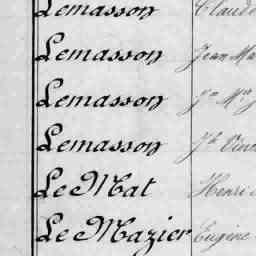 Lemasson Claude
Lemasson Jean Ma
Lemasson Jn Mie J
Lemasson Jh Vinc
Le Mat Henri
Le Mazier Eugene